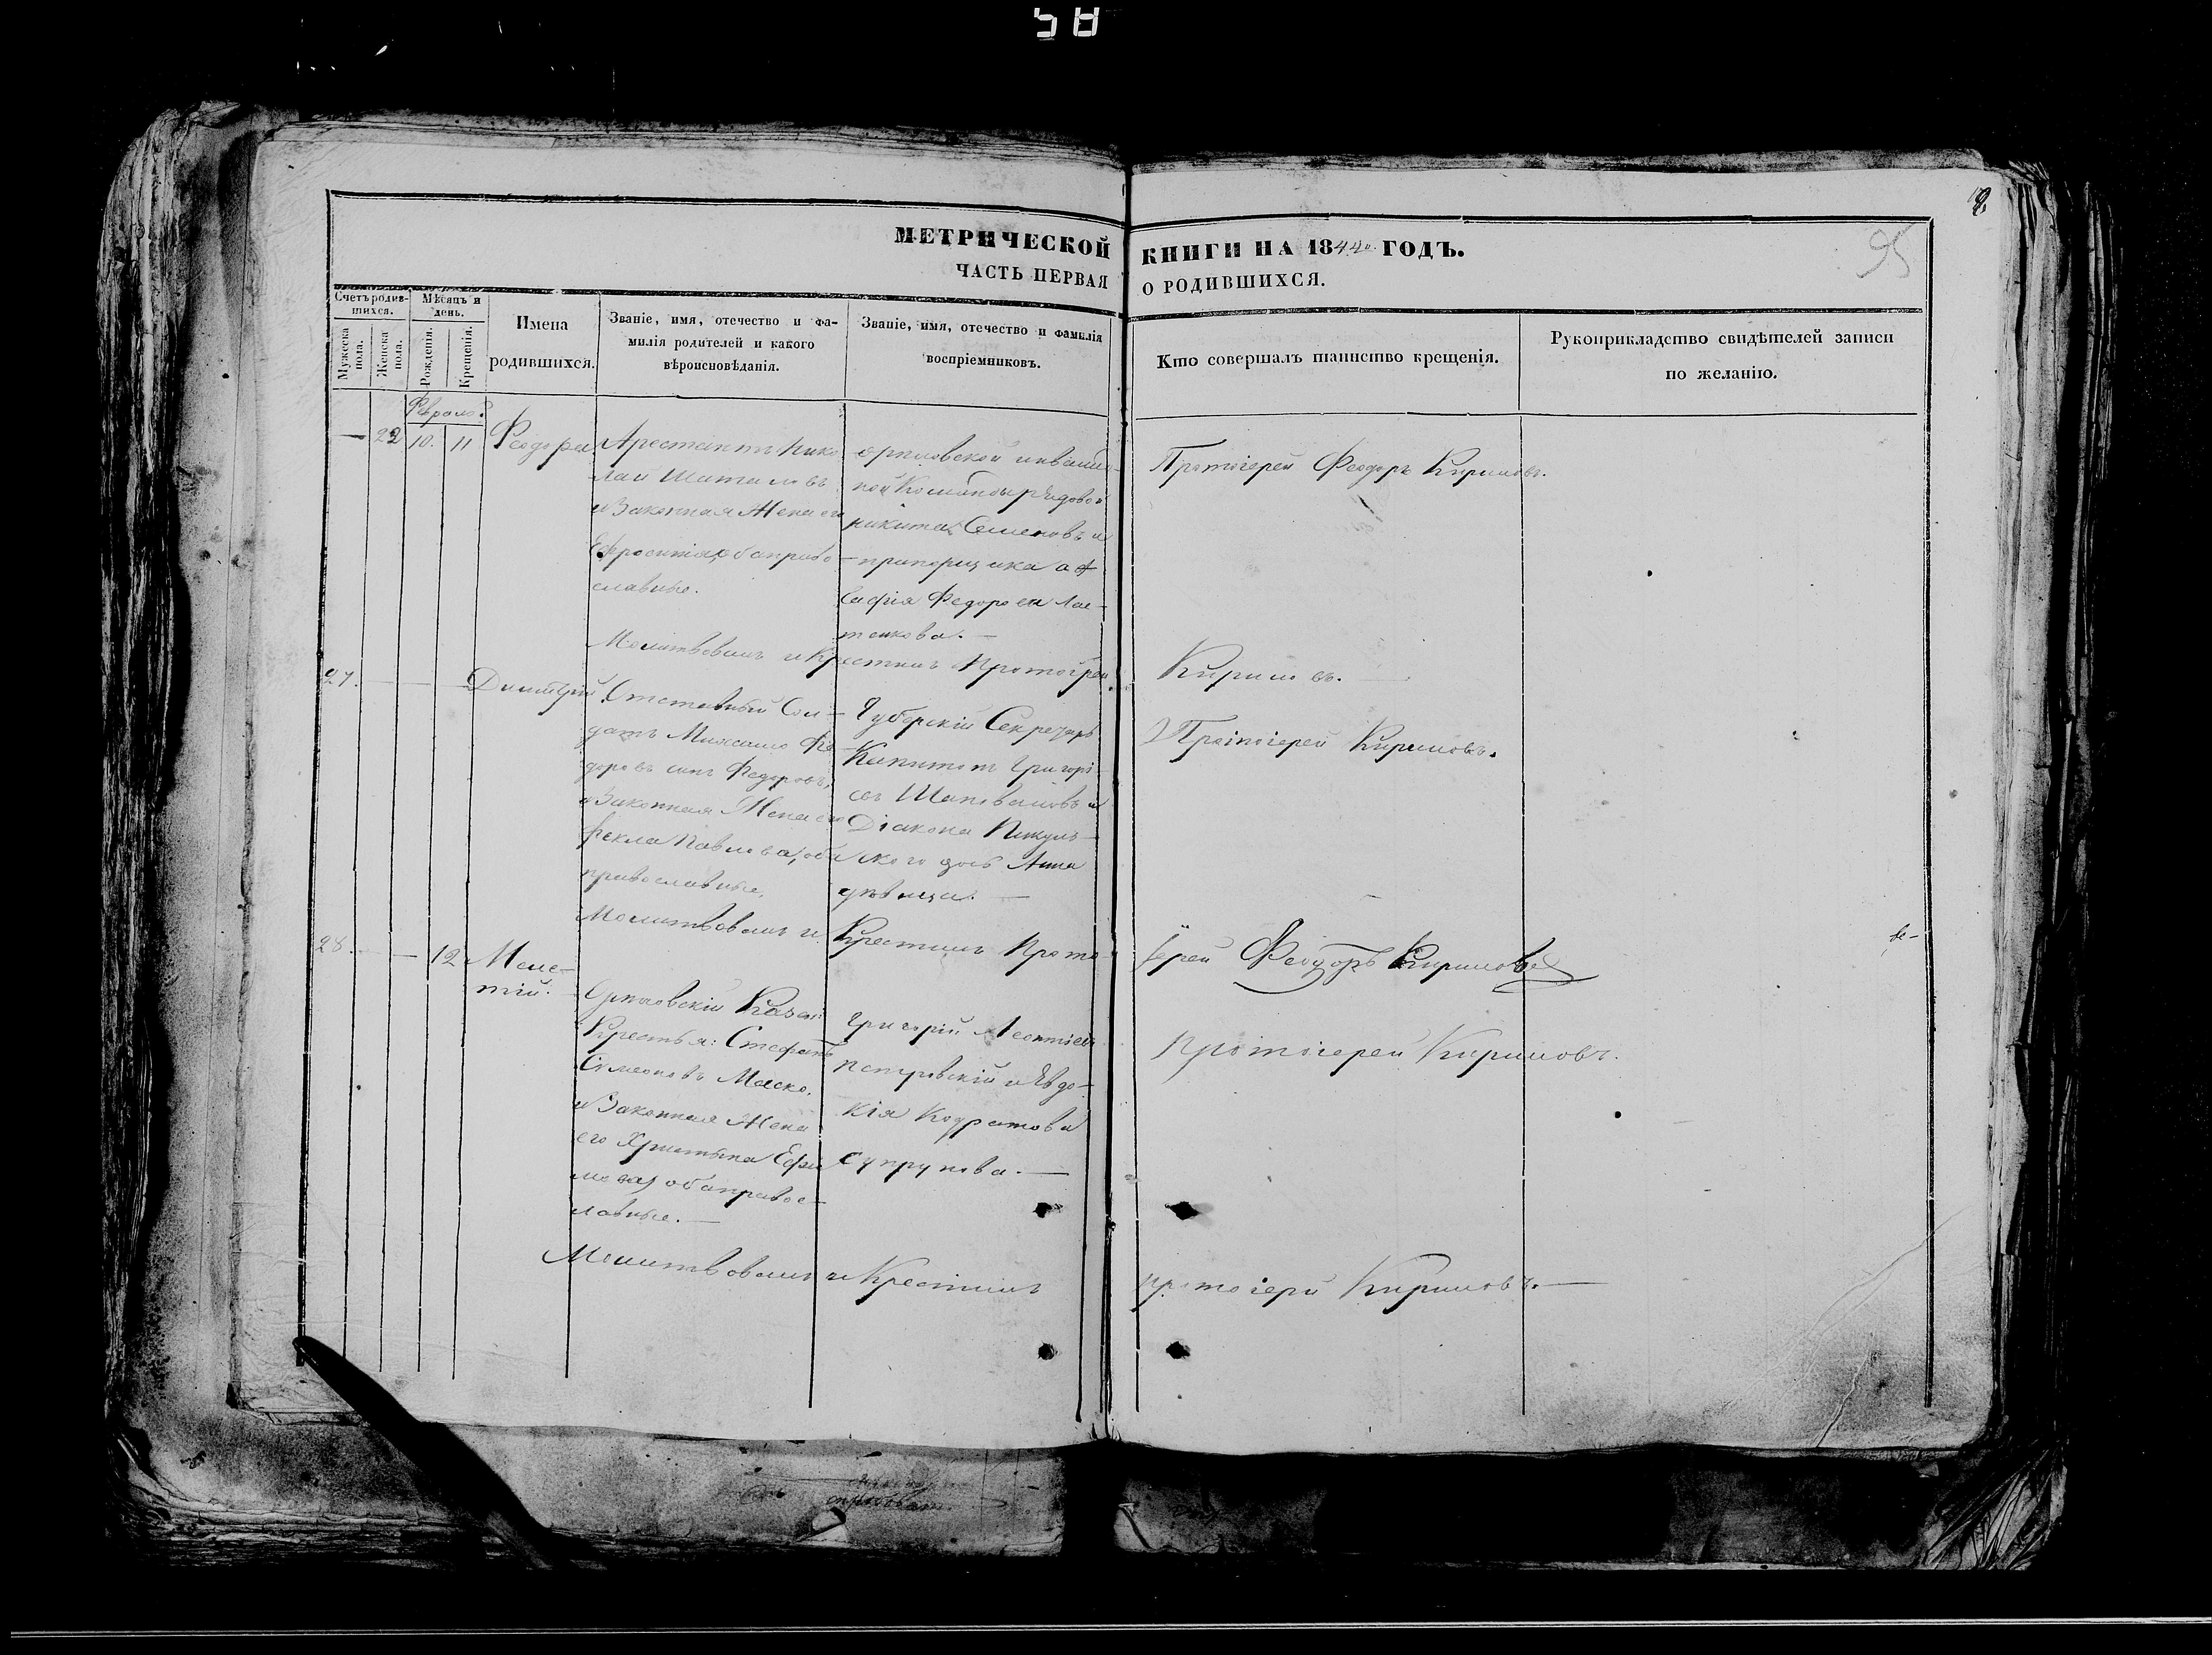 58
95
МЕТРИЧЕСКОЙ КНИГИ НА 1844й ГОДЪ.
ЧАСТЬ ПЕРВАЯ О РОДИВШИХСЯ.
Счетъ родив-
шихся.
Мужеска пола.
Женска пола.
Мѣсяцъ и
день.
Рожденія.
Крещенія.
Имена
родившихся.
Званіе, имя, отечество и фа-
милія родителей и какого
вѣроисповѣданія.
Званіе, имя, отечество и фамилія
воспріемниковъ.
Кто совершалъ таинство крещенія.
Рукоприкладство свидѣтелей записи
по желанію.
— 22 10. 11
Феодора
Арестантъ Нико
лай Шаталовъ
и Законная Жена его
Ефросинія, оба право-
славные.
никита Семеновъ и
Федорова
Протоіерей Феодоръ Кириловъ.
Молитвовалъ и Крестилъ Протоіерей
Кириловъ.
27.
Димитрій
Отставный Сол-
датъ Михаилъ Фе-
доровъ сынъ Федоровъ,
и Законная Жена его
Фекла Павлова, оба
православные,
Губернскій Секретарь
Капитонъ Григорі-
евъ Шаповаловъ и
Діакона
дочь Анна
дѣвица. —
Протоіерей Кириловъ.
Молитвовалъ и Крестилъ Прото-
іерей Феодоръ Кириловъ
28. — — 12
Меле-
тій.
Казен:
Крестья: Стефанъ
Симеоновъ Маско.
и Законная Жена
его Христина Ефи
мова, оба правос-
лавные. —
Григорій Леонтіевъ
Петровскій и Евдо-
кія Кодратова
Супрунова. —
Протоіерей Кириловъ.
Молитвовалъ и Крестилъ
протоіерей Кириловъ. —